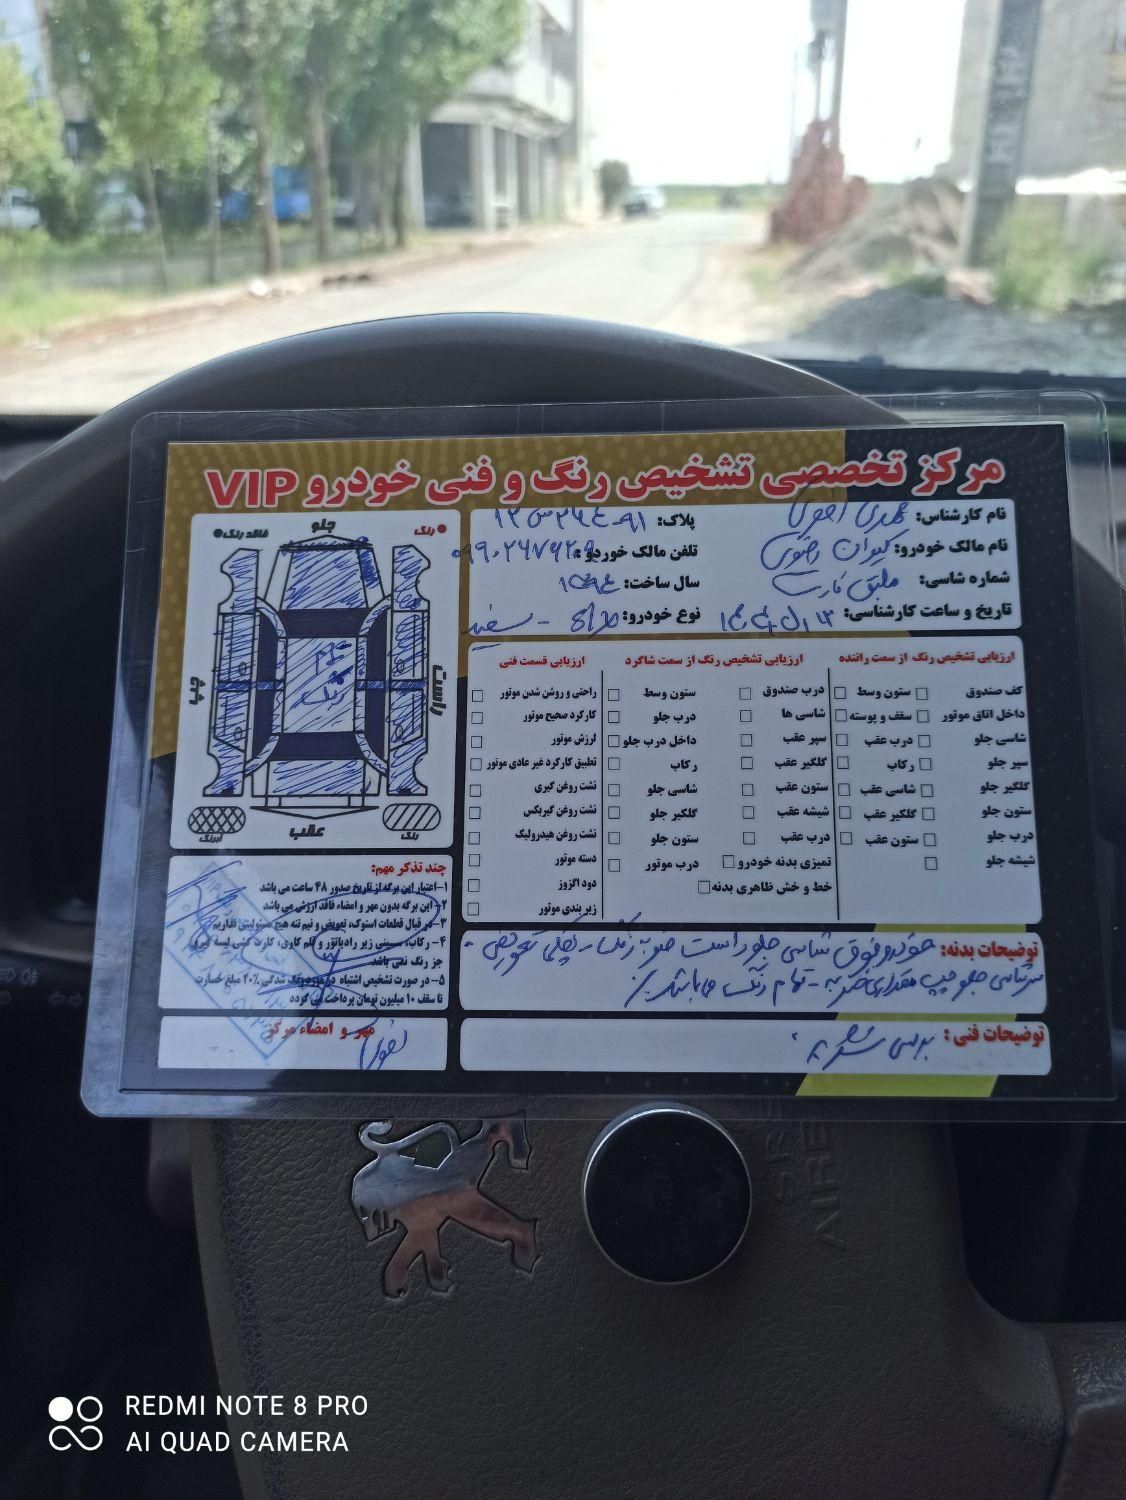 مرکز تخصصی تشخیص رنگ و فنی خودرو VIP
نام کارشناس: مهدی
پلاک:
نام مالک خودرو: کیوان رضوی
تلفن مالک خوردو:
شماره شاسی: طبق کارت
سال ساخت: ۱۳۹۴
تاریخ و ساعت کارشناسی:
نوع خودرو: - سفید
رنگ
جلو
فاقد رنگ
راست
چپ
عقب
رنگ
آبرنگ
ارزیابی تشخیص رنگ از سمت راننده
ارزیابی تشخیص رنگ از سمت شاگرد
ارزیابی قسمت فنی
کف صندوق
ستون وسط
درب صندوق
ستون وسط
راحتی و روشن شدن موتور
داخل اتاق موتور
سقف و پوسته
شاسی ها
درب جلو
کارکرد صحیح موتور
شاسی جلو
درب عقب
سپر عقب
داخل درب جلو
لرزش موتور
سپر جلو
رکاب
گلگیر عقب
رکاب
تطبیق کارکرد غیر عادی موتور
گلگیر جلو
شاسی عقب
ستون عقب
شاسی جلو
نشت روغن گیری
ستون جلو
گلگیر عقب
شیشه عقب
گلگیر جلو
نشت روغن گیربکس
درب جلو
ستون عقب
درب عقب
ستون جلو
نشت روغن هیدرولیک
شیشه جلو
تمیزی بدنه خودرو
درب موتور
دسته موتور
خط و خش ظاهری بدنه
دود اگزوز
زیر بندی موتور
چند تذکر مهم:
۱-اعتبار این برگه از تاریخ صدور ۴۸ ساعت می باشد
۲- این برگه بدون مهر و امضاء فاقد ارزش می باشد
۳-در قبال قطعات استوک، تعویض و نیم تنه هیچ مسئولیتی نداریم
۴- رکاب، سینی زیر رادیاتور و قلم کاری، کارت کشی لیسه گیری
جز رنگ نمی باشد
۵- در صورت تشخیص اشتباه در مورد رنگ شدگی ۲۰٪ مبلغ خسارت
تا سقف ۱۰ میلیون تومان پرداخت می گردد
مهر و امضاء مرکز
توضیحات بدنه: خودرو فوق شاسی جلو راست ضربه
سرشاسی جلو چپ مقداری ضربه - تمام رنگ می باشد
توضیحات فنی: بررسی نشد
SRS
AIRBAG
REDMI NOTE 8 PRO
AI QUAD CAMERA